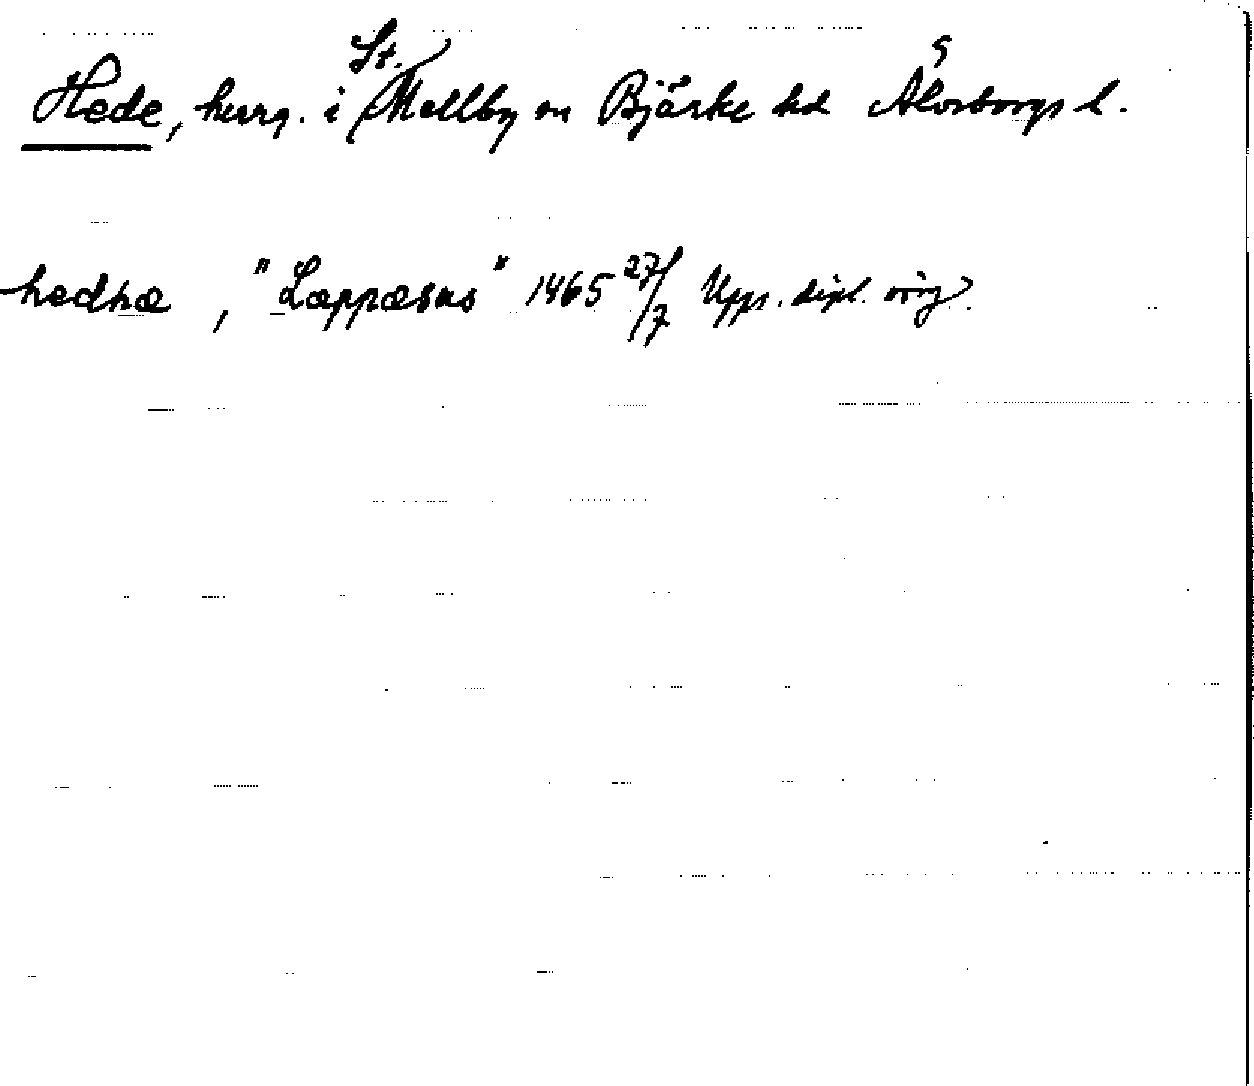 Hede, herrg. i St. Mellby sn Bjärke hd Älvsborgs l.
hedhæ, "Læppæsus" 1465 27/7 Upps. dipl. orig.